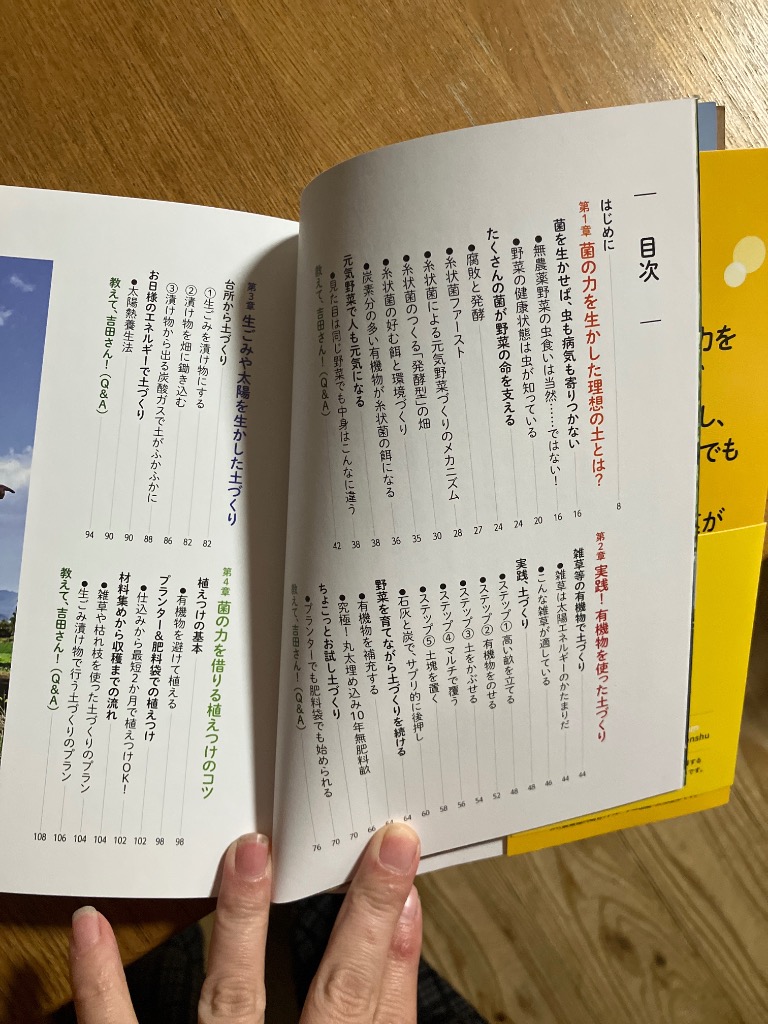 目次
はじめに 8
第1章 菌の力を生かした理想の土とは?
菌を生かせば、虫も病気も寄りつかない 16
●無農薬野菜の虫食いは当然……ではない! 16
●野菜の健康状態は虫が知っている 20
たくさんの菌が野菜の命を支える 24
●腐敗と発酵 24
●糸状菌ファースト 27
●糸状菌による元気野菜づくりのメカニズム 28
●糸状菌のつくる「発酵型」の畑 30
●糸状菌の好む餌と環境づくり 35
●炭素分の多い有機物が糸状菌の餌になる 36
元気野菜で人も元気になる 38
●見た目は同じ野菜でも中身はこんなに違う 38
教えて、吉田さん!(Q&A) 42
第2章 実践!有機物を使った土づくり
雑草等の有機物で土づくり 44
●雑草は太陽エネルギーのかたまりだ 44
●こんな雑草が適している 46
実践 土づくり 48
●ステップ① 高い畝を立てる 48
●ステップ② 有機物をのせる 52
●ステップ③ 土をかぶせる 54
●ステップ④ マルチで覆う 56
●ステップ⑤ 土塊を置く 58
●石灰と炭で、サプリ的に後押し 60
野菜を育てながら土づくりを続ける 64
●有機物を補充する 64
●究極!丸太埋め込み10年無肥料畝 66
ちょこっとお試し土づくり 70
●プランターでも肥料袋でも始められる 70
教えて、吉田さん!(Q&A) 76
第3章 生ごみや太陽を生かした土づくり
台所から土づくり 82
①生ごみを漬け物にする 82
②漬け物を畑に鋤き込む 86
③漬け物から出る炭酸ガスで土がふかふかに 88
お日様のエネルギーで土づくり 90
●太陽熱養生法 90
教えて、吉田さん!(Q&A) 94
第4章 菌の力を借りる植えつけのコツ
植えつけの基本 98
●有機物を避けて植える 98
プランター&肥料袋での植えつけ 102
●仕込みから最短2か月で植えつけOK! 102
材料集めから収穫までの流れ 104
●雑草や枯れ枝を使った土づくりのプラン 104
●生ごみ漬け物で行う土づくりのプラン 106
教えて、吉田さん!(Q&A) 108
力を
し、
でも
が
nahu
する
です。